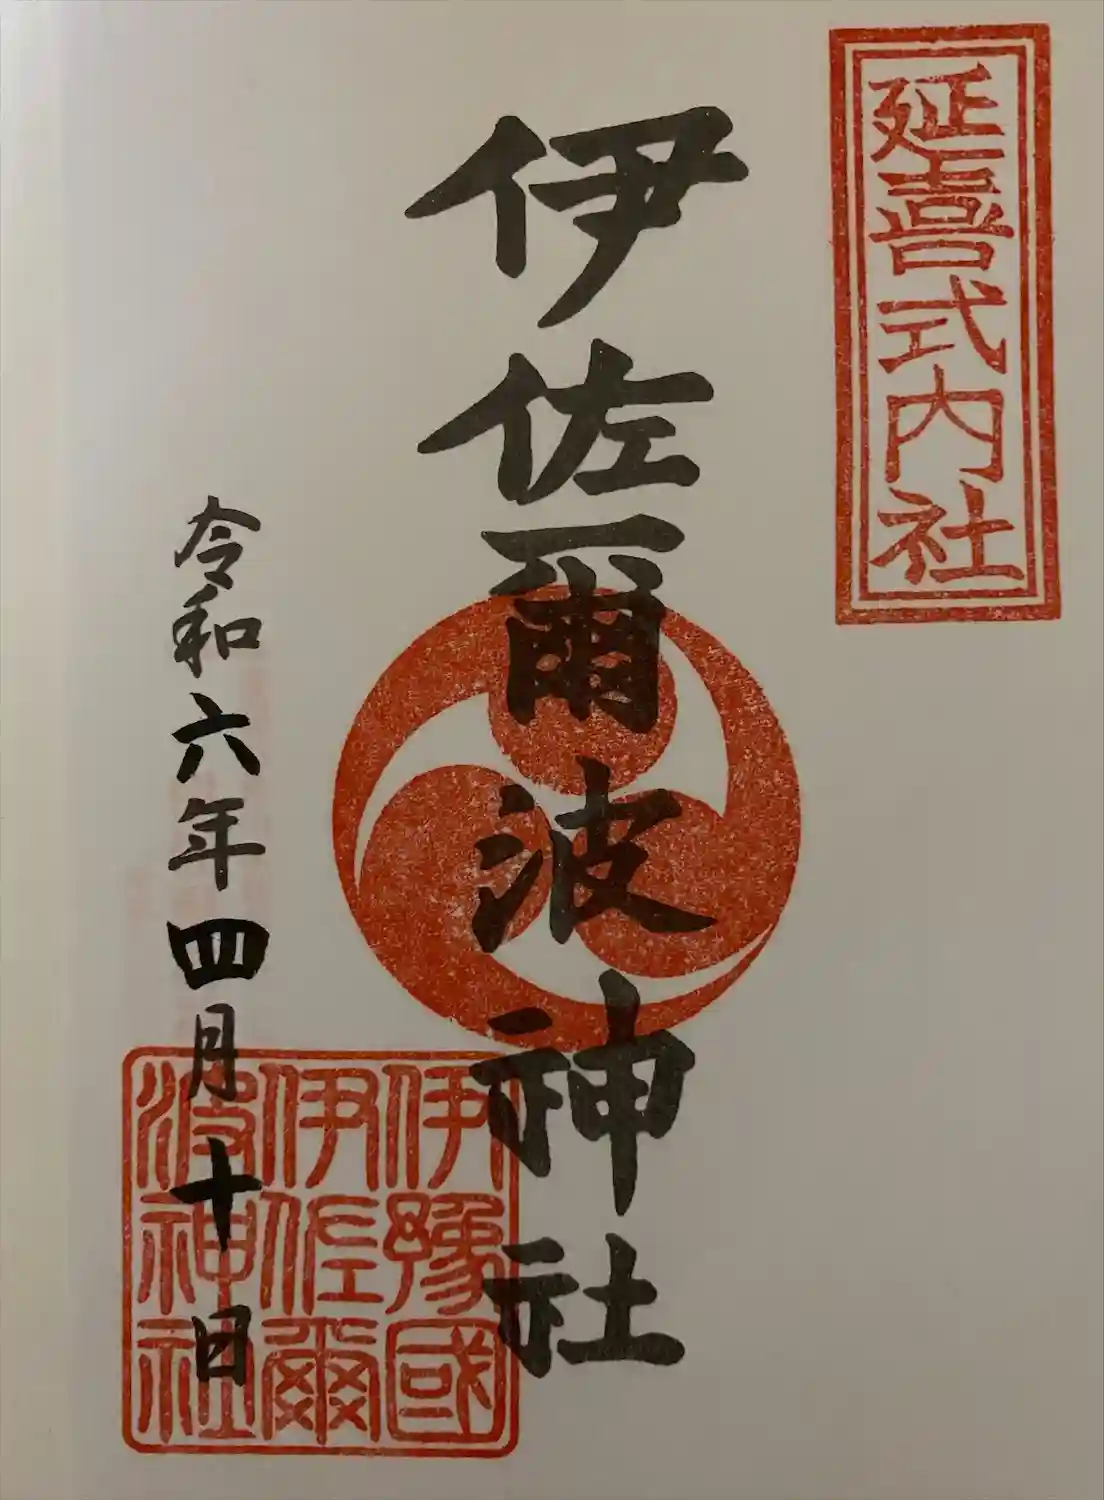 延喜式内社
伊佐爾波神社
伊豫國
伊佐爾
波神社
令和六年四月十日